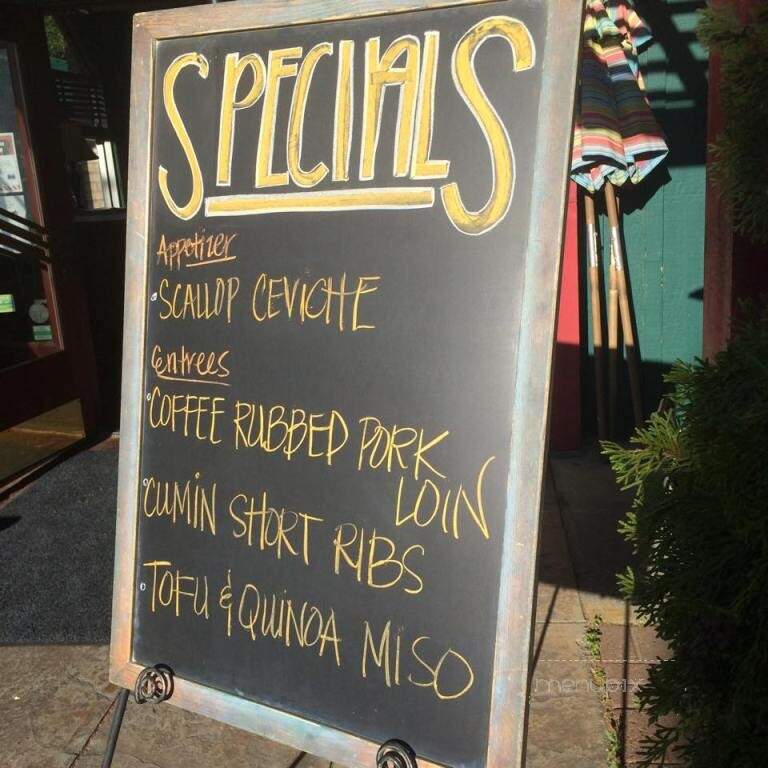 SPECIALS
Appetizer
SCALLOP CEVICHE
Entrees
COFFEE RUBBED PORK
LOIN
CUMIN SHORT RIBS
TOFU & QUINOA MISO
menupix